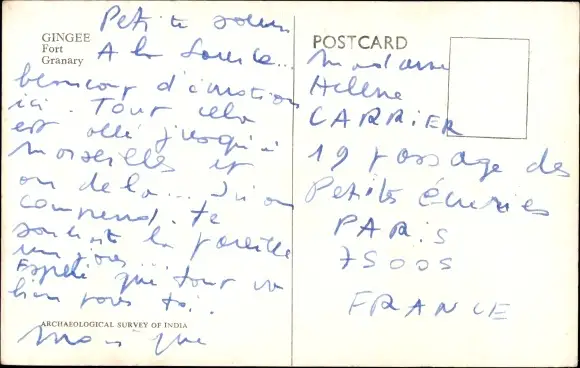 GINGEE
Fort
Granary
Petite soeur
A la source...
beaucoup d'émotions
ici. Tout cela
est allé jusqu'à
Marseilles et
au delà... Si on
comprend. te
souhaite la pareille
un jour...
que tout va
bien pour toi.
ARCHAEOLOGICAL SURVEY OF INDIA
POSTCARD
Madame
Hélène
CARRIER
19 passage des
Petites Écuries
PARIS
75005
FRANCE